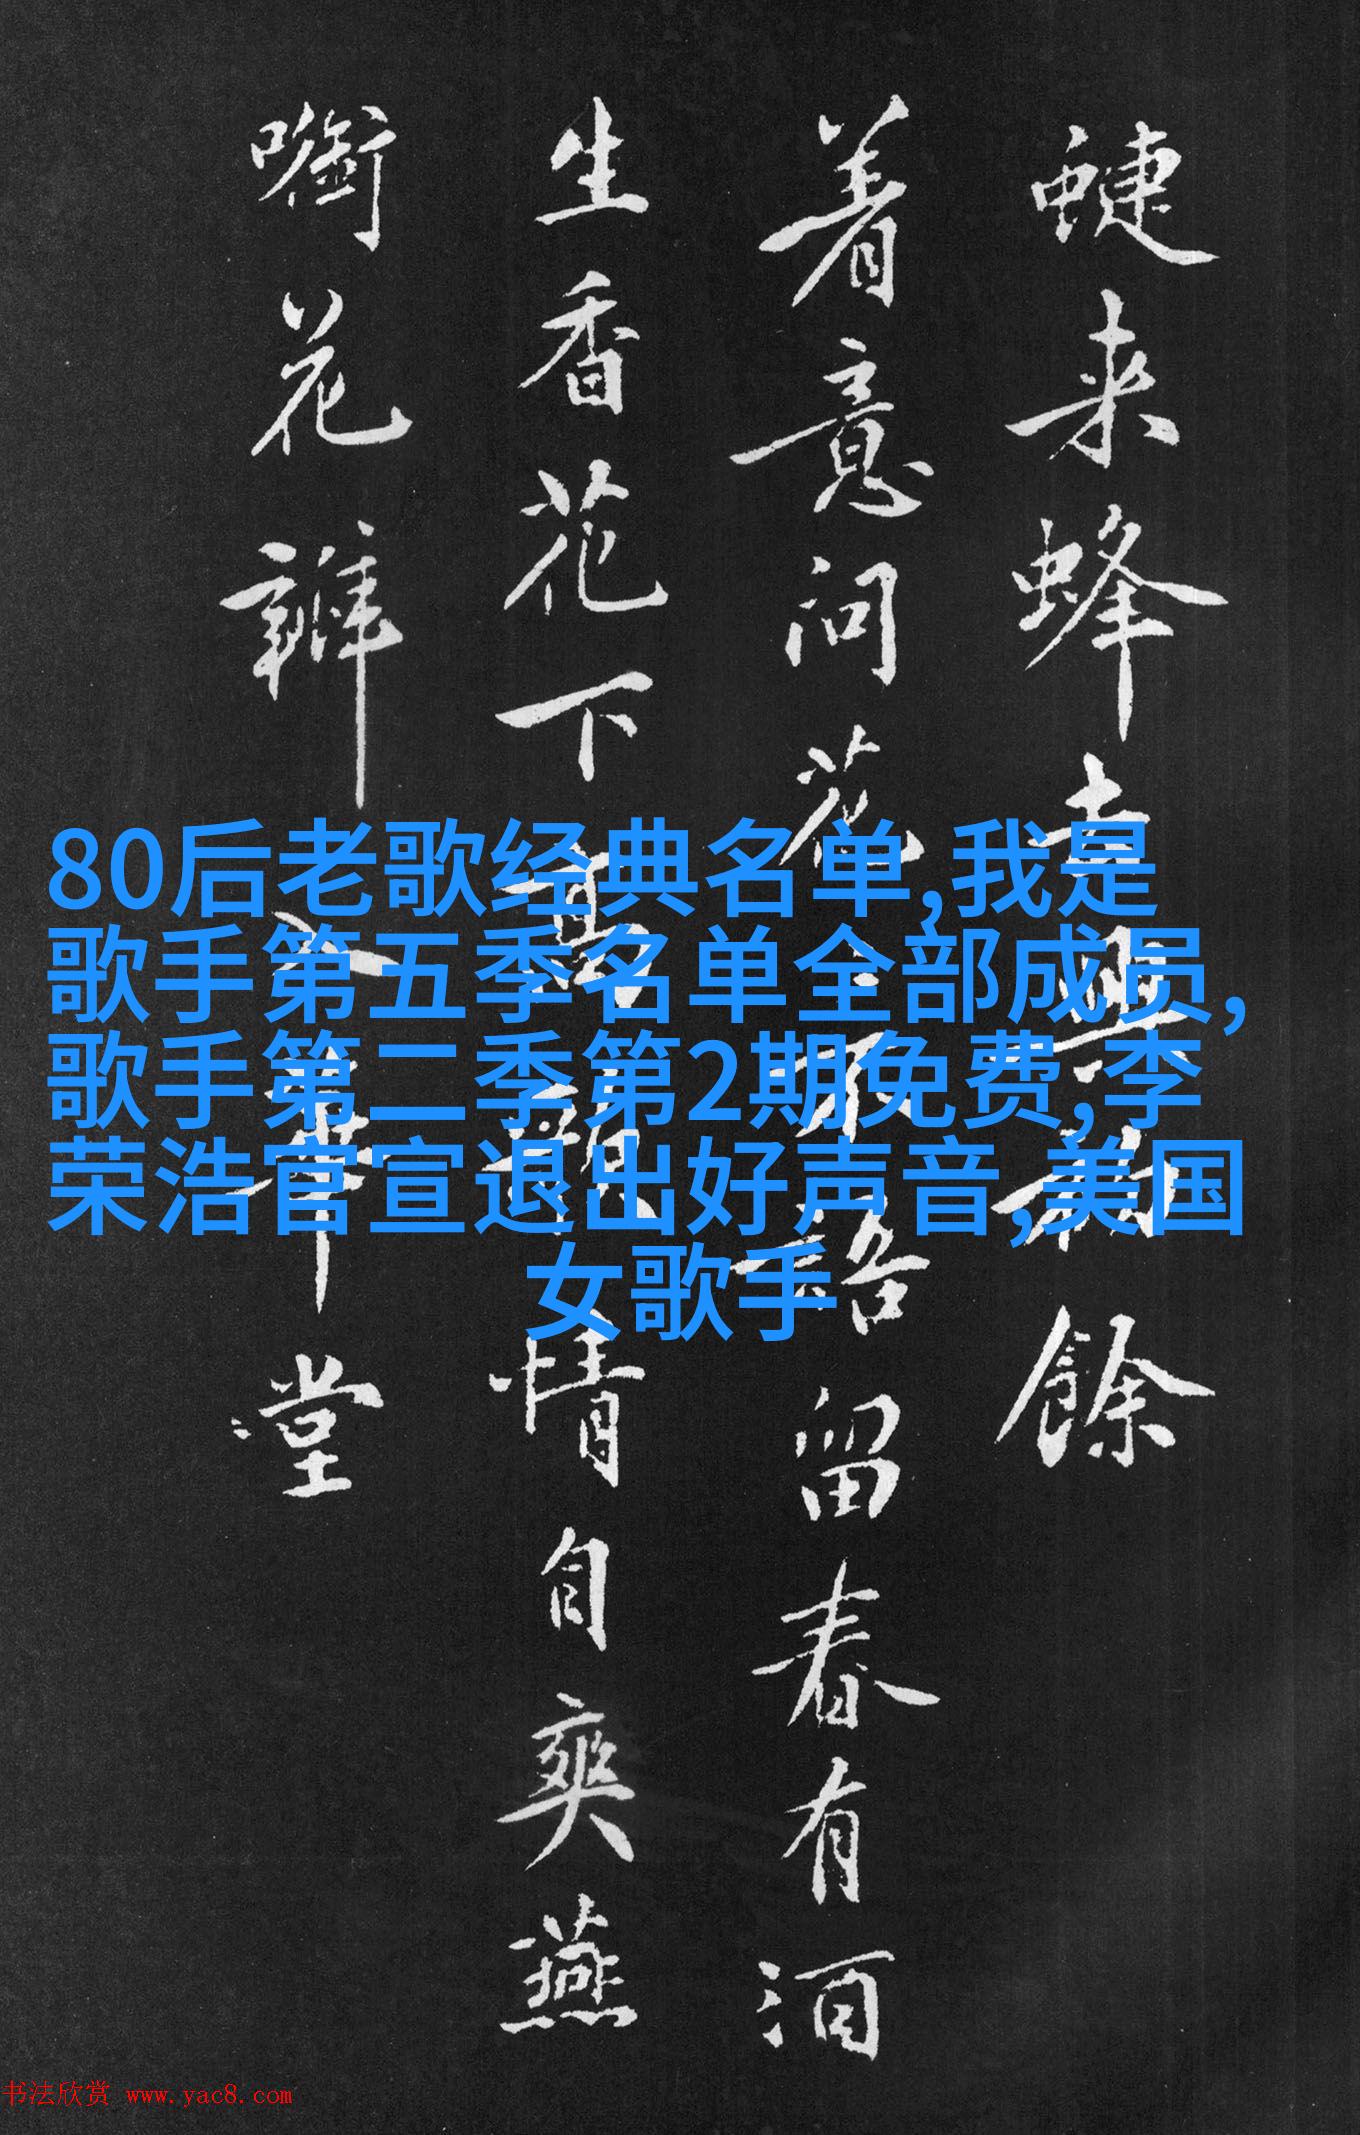 蜨来蜂去興餘
着意問花々不語留春有酒
生香花下高情自爽燕
花瓣入華堂
80后老歌经典名单,我是
歌手第五季名单全部成员,
歌手第二季第2期免费,李
荣浩官宣退出好声音,美国
女歌手
书法欣赏 www.yac8.com